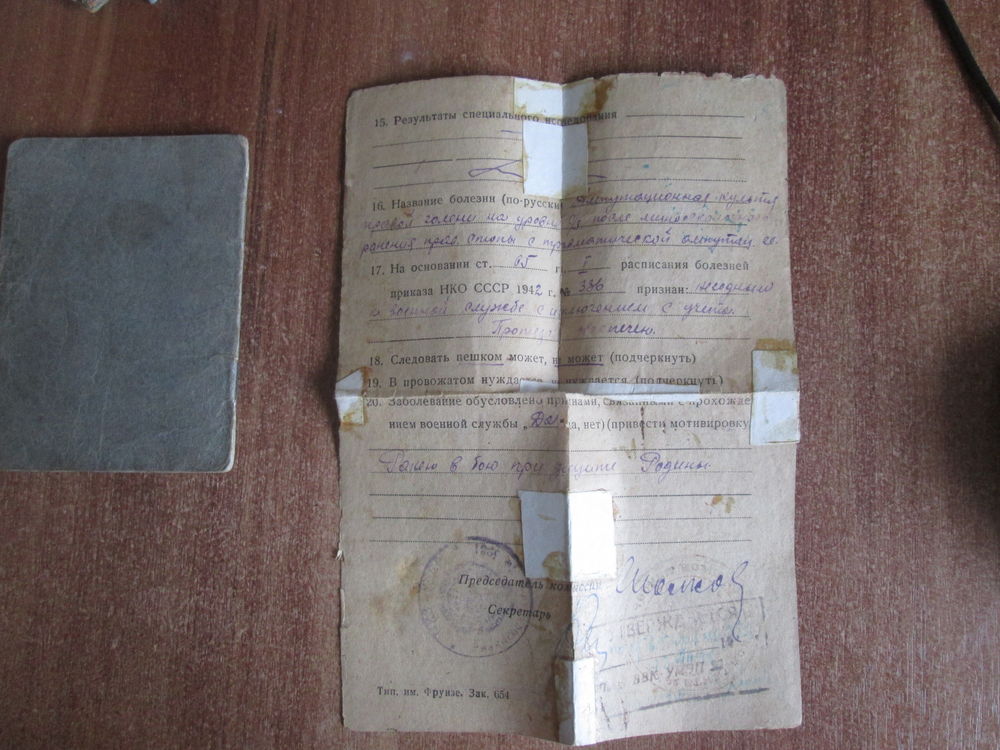 15. Результаты специального исследования
16. Название болезни (по-русски) Ампутационная культя
правой голени на уровне после
ранения прав. стопы с травматической ампутац. ее.
17. На основании ст. 65 г. I расписания болезней
приказа НКО СССР 1942 г. № 336 признан: негодный
к военной службе с исключением с учета.
18. Следовать пешком может, не может (подчеркнуть)
19. В провожатом нуждается, не нуждается (подчеркнуть)
20. Заболевание обусловлено причинами, связанными с прохожде-
нием военной службы „Да“ (да, нет) (привести мотивировку
Ранен в бою при защите Родины.
Председатель комиссии
Секретарь
УТВЕРЖДАЕТСЯ
ВВК
Тип. им. Фрунзе. Зак. 654